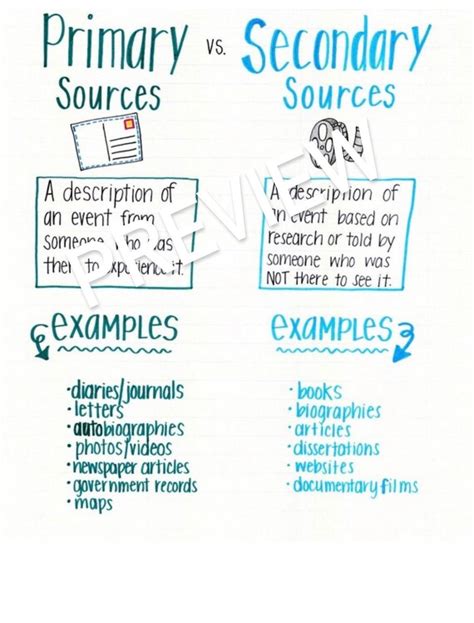 Primary vs. Secondary
Sources Sources
A description of
an event from
someone who was
there to experience it.
A description of
an event based on
research or told by
someone who was
NOT there to see it.
PREVIEW
EXAMPLES
EXAMPLES
•diaries/journals
•letters
•autobiographies
•photos/videos
•newspaper articles
•government records
•maps
•books
•biographies
•articles
•dissertations
•websites
•documentary films